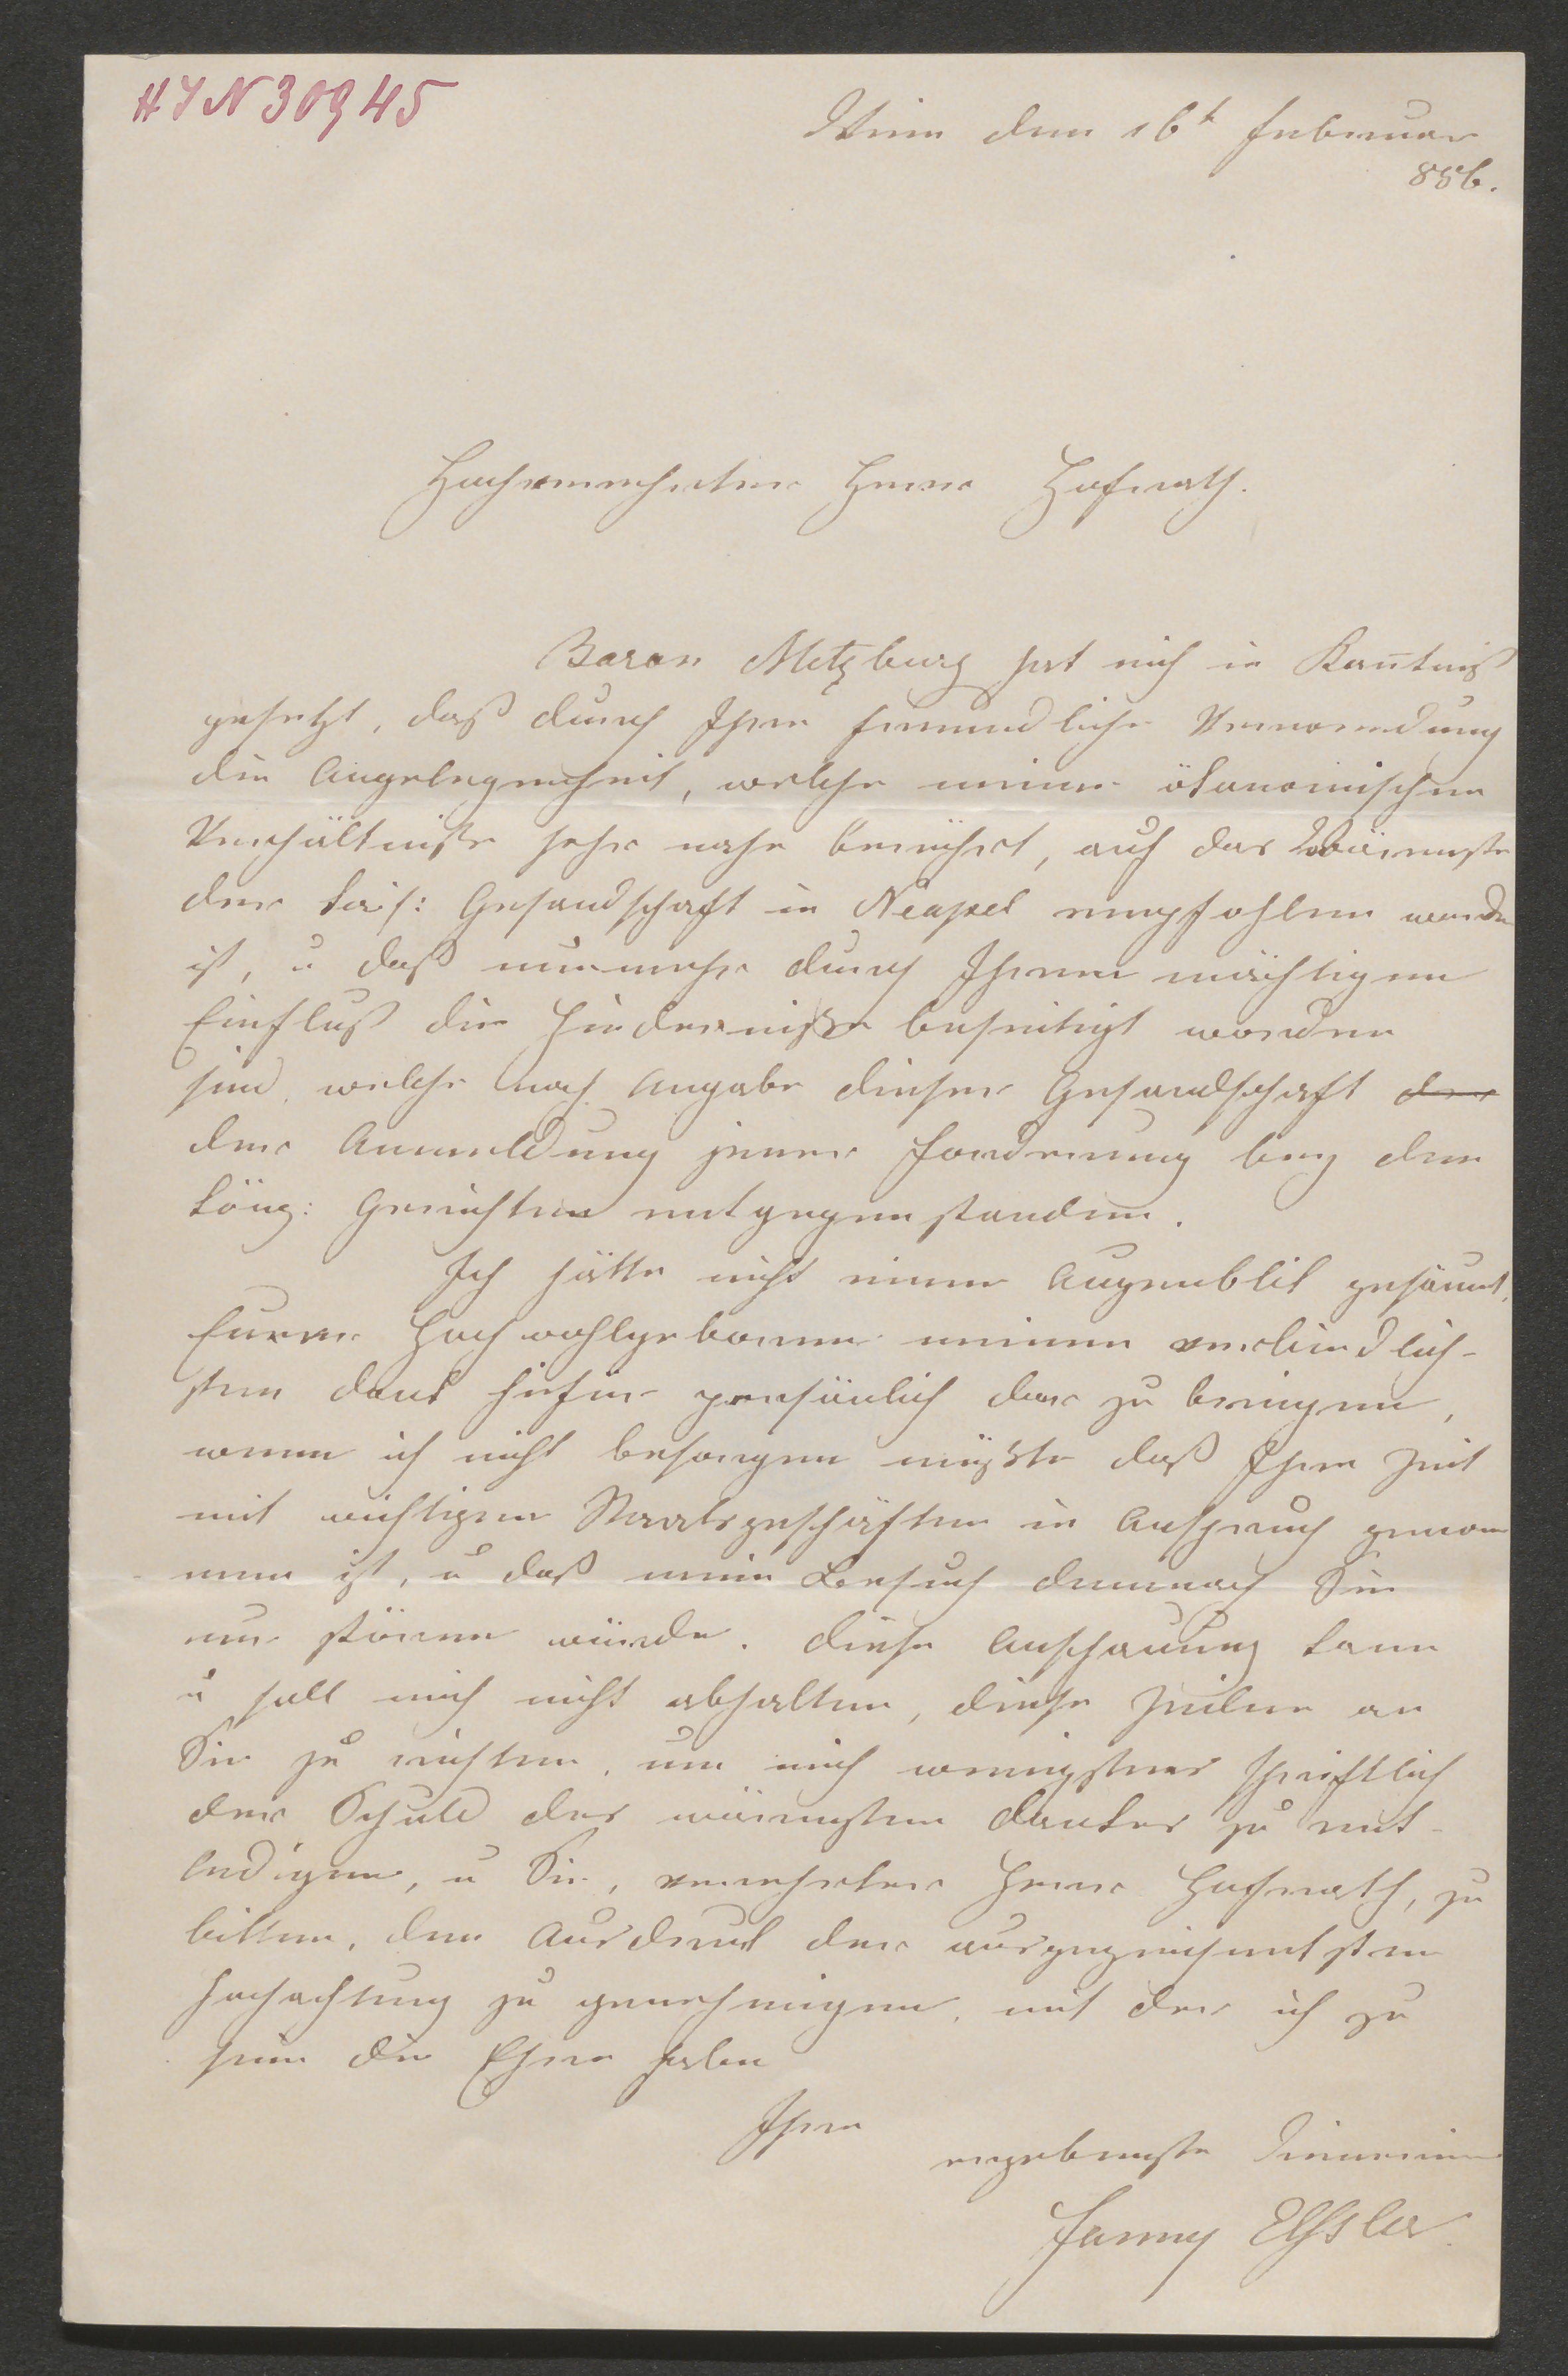 HIN 30945
Wien den 16t Februar
856.
Hochverehrter Herr Hofrath.
Baron Metzburg hat mich in Kentniß
gesetzt, daß durch Ihre freundliche Verwendung
die Angelegenheit, welche meine ökonomischen
Verhältniße sehr nahe berührt, auf das Wärmste
der kais: Gesandschaft in Neapel empfohlen worden
ist, u daß nunmehr durch Ihren mächtigen
Einfluß die Hinderniße beseitigt worden
sind, welche nach Angabe dieser Gesandschaft der
der Anmeldung jener Forderung bey den
köng: Gerichten entgegenstanden.
Ich hätte nicht einen Augenblik gesäumt,
Euerer Hochwohlgeboren meinen verbindlich-
sten Dank hiefür persönlich dar zu bringen,
wenn ich nicht besorgen müßte daß Ihre Zeit
mit wichtigen Staatsgeschäften in Anspruch genom
men ist, u daß mein Besuch demnach Sie
nur stören würde. Diese Anschauung kann
u soll mich nicht abhalten, diese Zeilen an
Sie zu richten, um mich wenigstens schriftlich
der Schuld des wärmsten Dankes zu ent-
ledigen, u Sie, verehrter Herr Hofrath, zu
bitten, den Ausdruk der ausgezeichnetsten
Hochachtung zu genehmigen, mit der ich zu
sein die Ehre habe
Ihre
ergebenste Dienerin
Fanny Elßler